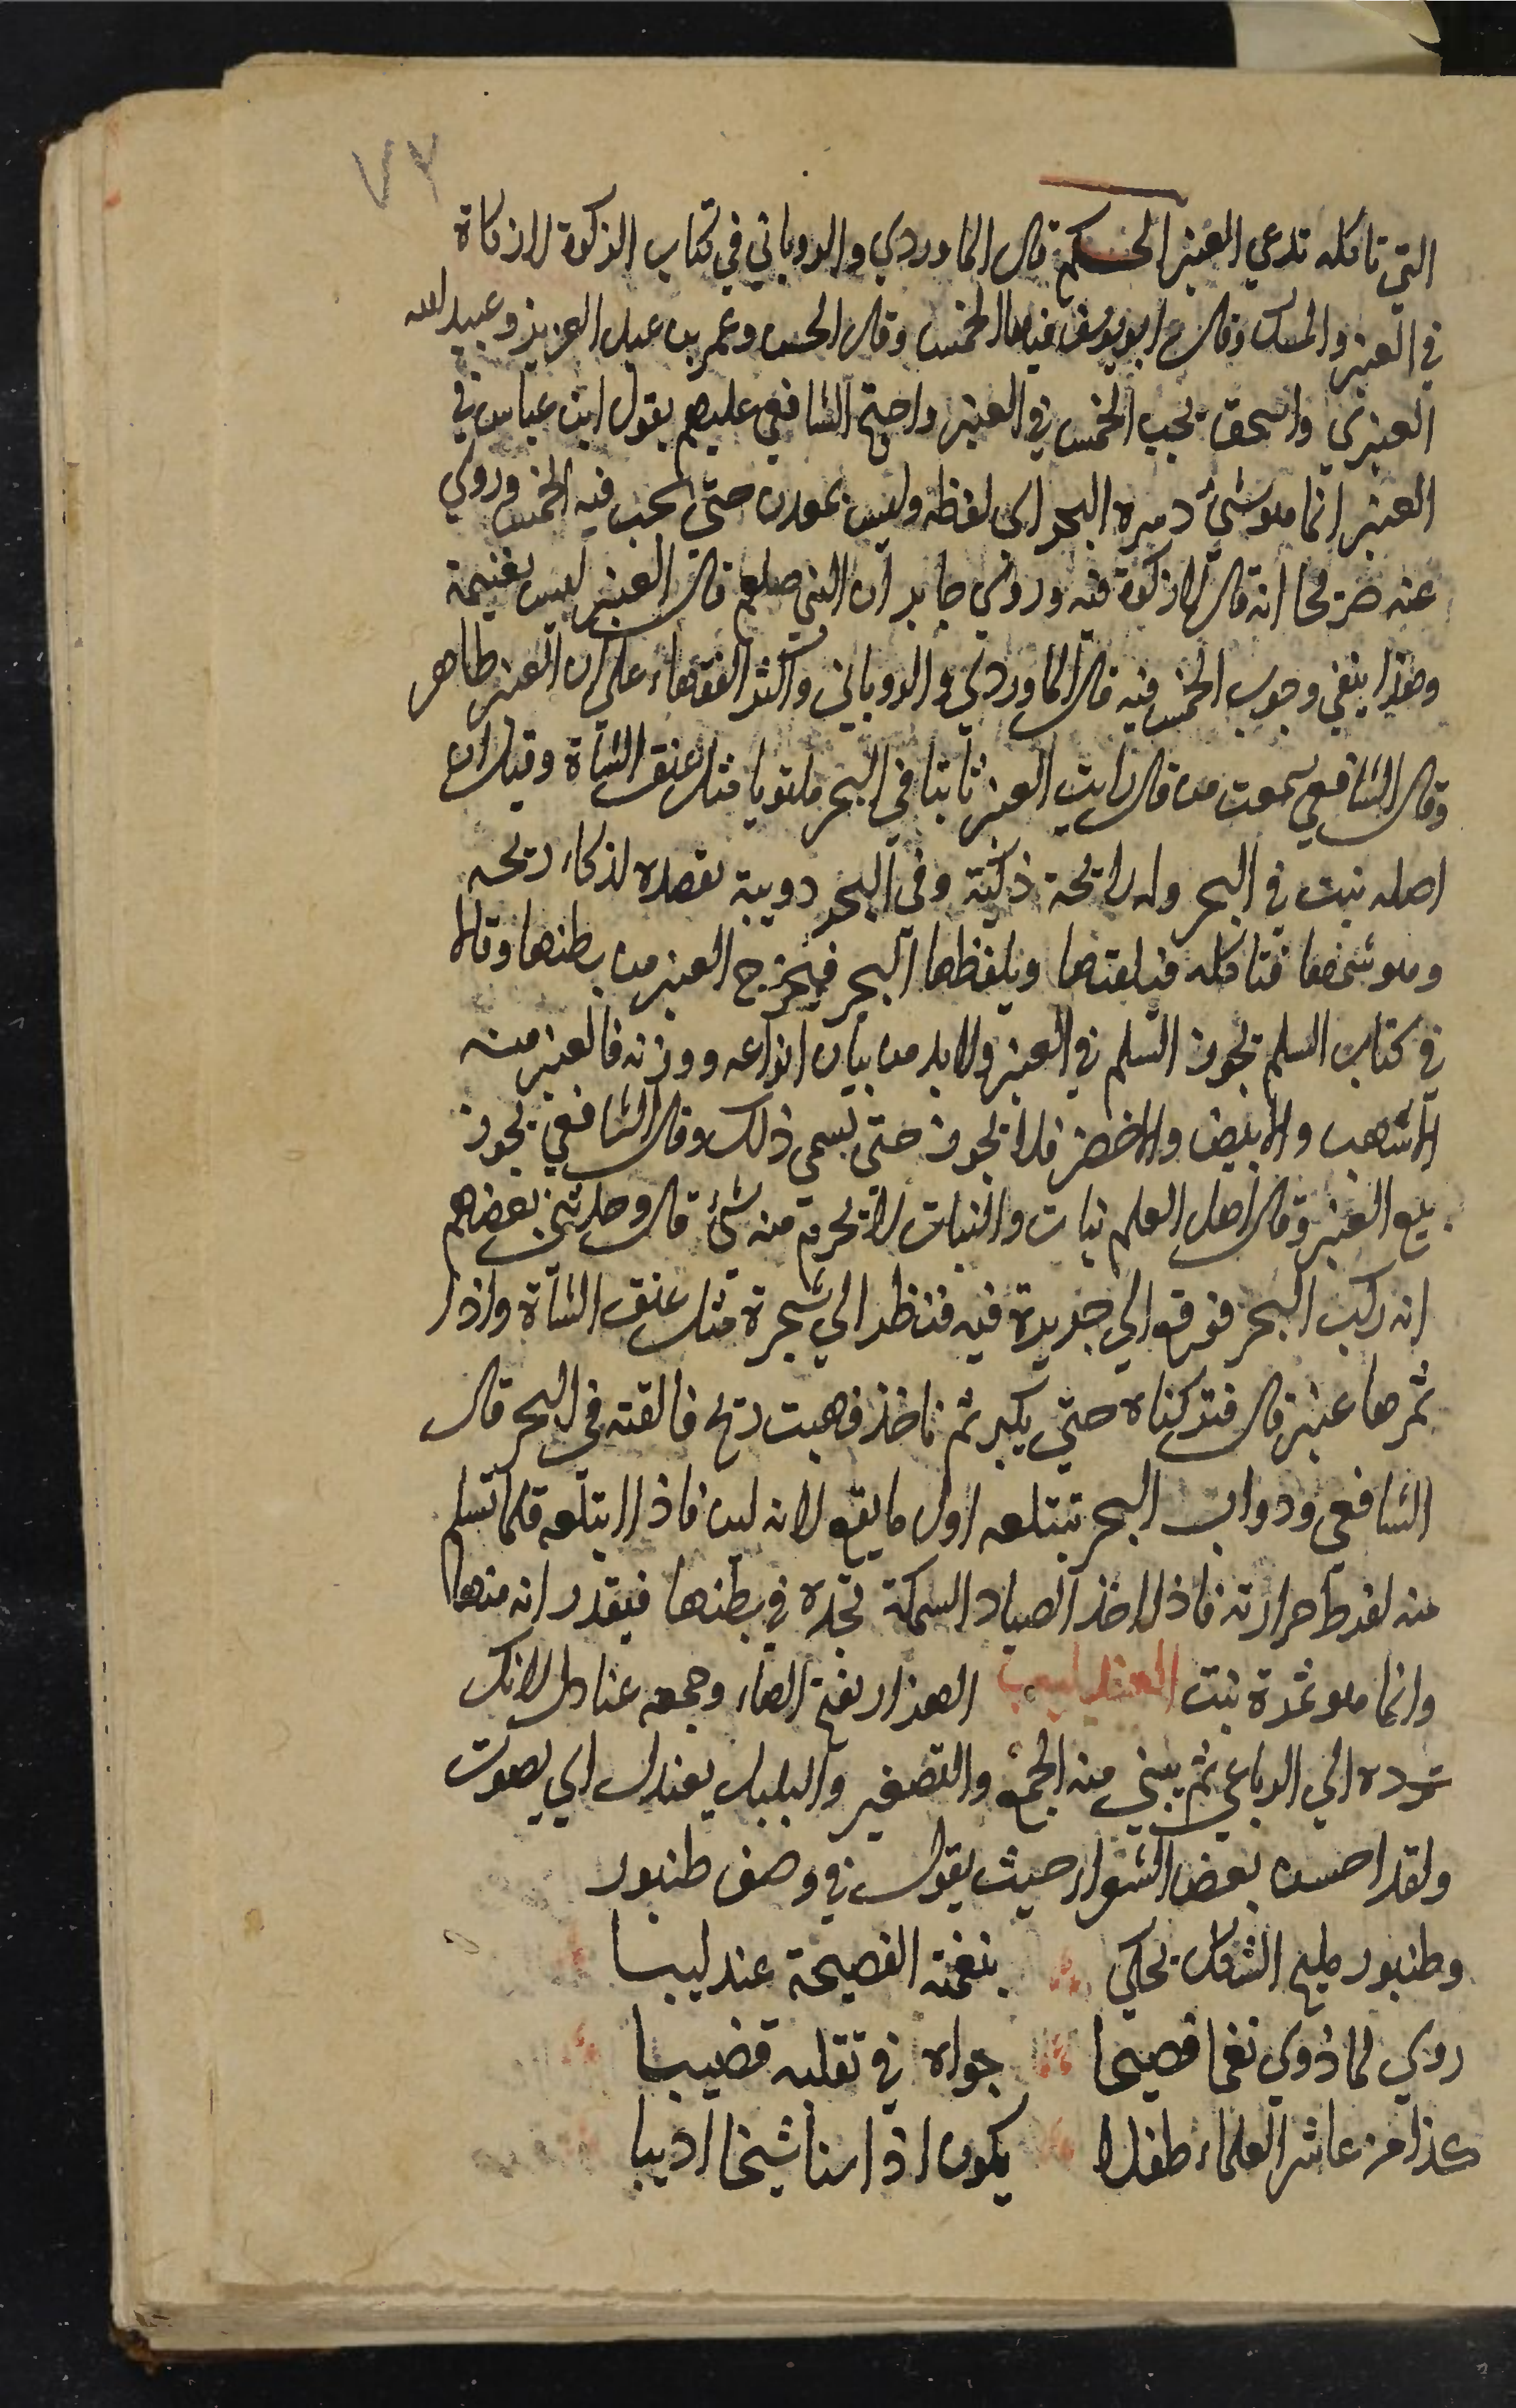 ٧٢
التي تاكله تدعي العنبر الحكم قال الماوردي والروياني في كتاب الزكوة لا زكاة
في العنبر والمسك وقال ابو يوسف فيهما الخمس وقال الحسن وعمر بن عبد العزيز وعبيد الله
العنبري واسحق يجب الخمس في العنبر واحتج الشافعي عليهم بقول ابن عباس في
العنبر انما هو شئ دسره البحر اى لفظه وليس بمعدن حتى يجب فيه الخمس وروي
عنه صريحا انه قال لا زكوة فيه وروي جابر ان النبي صلعم قال العنبر ليس بغنيمة
وهذا ينفي وجوب الخمس فيه قال الماوردي والروياني واكثر الفقهاء على ان العنبر طاهر
وقال الشافعي سمعت من قال رايت العنبر نابتا في البحر ملتويا مثل عنق الشاة وقيل ان
اصله نبت في البحر وله رايحة ذكية وفي البحر دويبة تقصده لذكاء ريحه
وهو سمها فتاكله فيقتلها ويلفظها البحر فيخرج العنبر من بطنها وقالا
في كتاب السلم يجوز السلم في العنبر ولا بد من بيان انواعه ووزنه فالعنبر منه
الاشهب والابيض والاخضر فلا يجوز حتى يسمى ذلك وقال الشافعي يجوز
بيع العنبر وقال اهل العلم نبات والنبات لا يحرم منه شئ قال وحدثني بعضهم
انه ركب البحر فوقع الي جزيرة فيه فنظر الي شجرة مثل عنق الشاة واذا
ثمرها عنبر قال فتركناه حتي يكبر ثم ناخذ فهبت ريح فالقته في البحر قال
الشافعي ودواب البحر تبتلعه اول ما يقع لانه لين فاذا ابتلعه قلما تسلم
منه لفرط حرارته فاذا اخذ الصياد السمكة تجده في بطنها فيقدر انه منها
وانما هو ثمرة نبت العندليب الهزار بفتح الهاء وجمعه عنادل لانك
ترده الي الرباعي ثم يبني منه الجمع والتصغير والبلبل يعندل اي يصوت
ولقد احسن بعض الشعراء حيث يقول في وصف طنبور
وطنبور مليح الشكل يحكي بنغمته الفصيحة عندليبا
روي لما ذوي نغما فصيحا حواه في تقلبه قضيبا
كذا من عاشر العلماء طفلا يكون اذا نشا شيخا اديبا